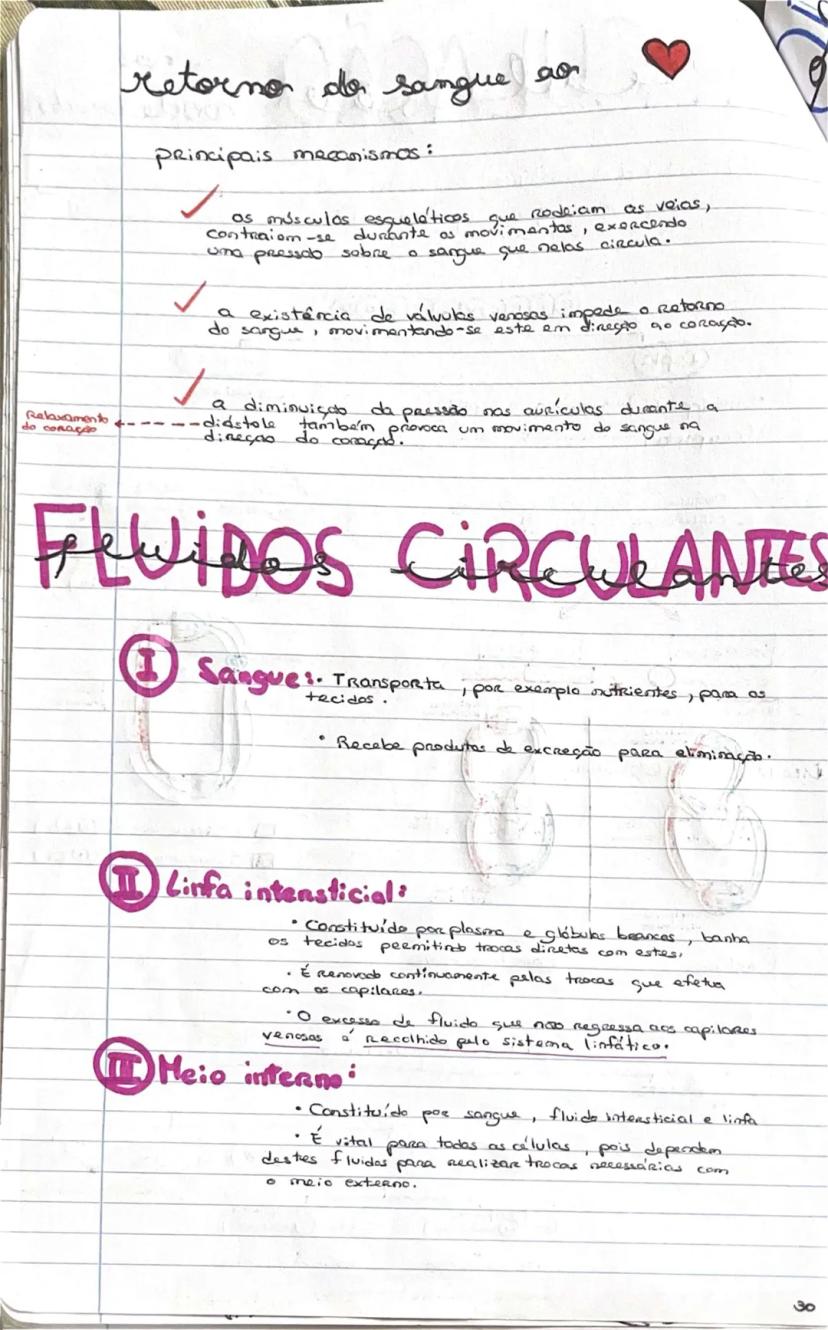 retorno do sangue ao
principais mecanismos:
os músculos esqueléticos que rodeiam as veias,
contraiam-se durante os movimentos, exercendo
uma pressão sobre o sangue que nelas circula.
a existência de válvulas venosas impede o retorno
do sangue, movimentando-se este em direção ao coração.
a diminuição da pressão nas aurículas durante a
diástole também provoca um movimento do sangue na
direção do coração.
Relaxamento
do coração
FLUIDOS CIRCULANTES
fluidos circulantes
I Sangue: • Transporta, por exemplo nutrientes, para os
tecidos.
• Recebe produtos de excreção para eliminação.
II Linfa intersticial:
• Constituído por plasma e glóbulos brancos, banha
os tecidos permitindo trocas diretas com estes.
• É renovado continuamente pelas trocas que efetua
com os capilares.
• O excesso de fluido que não regressa aos capilares
venosos é recolhido pelo sistema linfático.
III Meio interno:
• Constituído por sangue, fluido intersticial e linfa
• É vital para todas as células, pois dependem
destes fluidos para realizar trocas necessárias com
o meio externo.
30